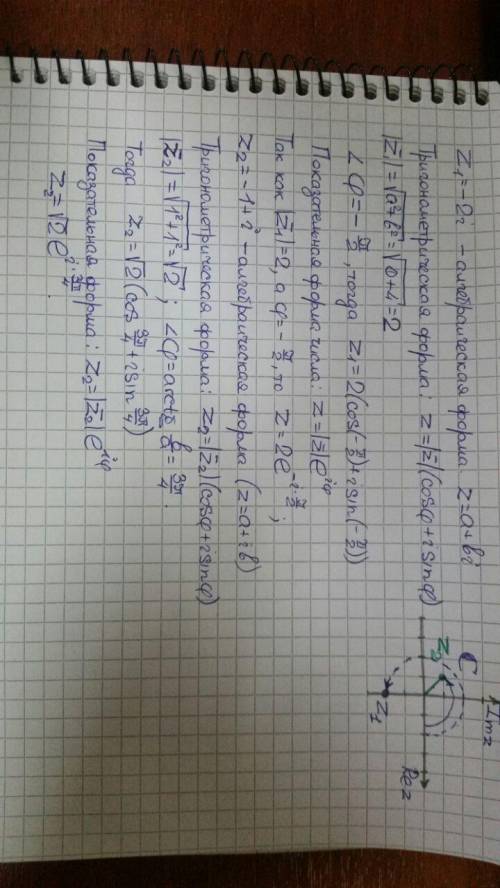 z₁ = -2i - алгебраическая форма z = a + bi
Тригонометрическая форма: z = |z|(cosφ + i sinφ)
|z₁| = √(a²+b²) = √(0+4) = 2
∠φ = -π/2, тогда z₁ = 2(cos(-π/2) + i sin(-π/2))
Показательная форма числа: z = |z|e^(iφ)
Так как |z₁| = 2, а φ = -π/2, то z = 2e^(-i·π/2);
z₂ = -1 + i - алгебраическая форма (z = a + ib)
Тригонометрическая форма: z₂ = |z₂|(cosφ + i sinφ)
|z₂| = √(1²+1²) = √2; ∠φ = arctg b/a = 3π/4
Тогда z₂ = √2(cos 3π/4 + i sin 3π/4)
Показательная форма: z₂ = |z₂|e^(iφ)
z₂ = √2 e^(i·3π/4).
Imz
C
z₂
Rez
z₁